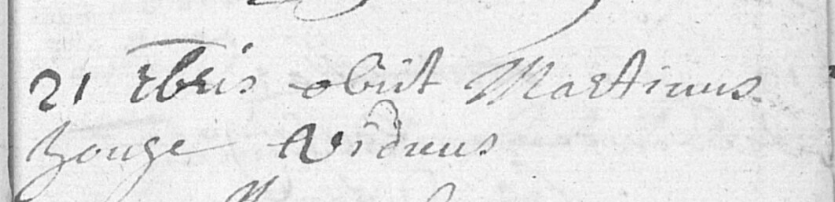 21 xbris obiit Martinus
Zonze viduus